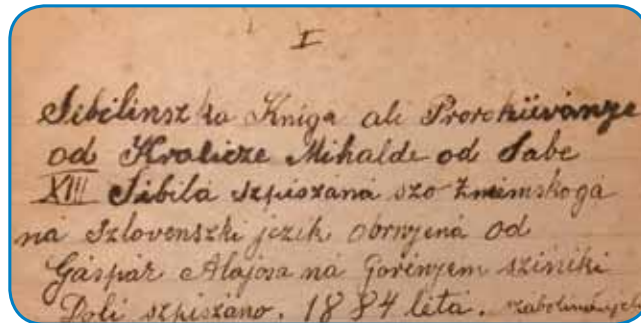 I
Sibilinszka Kniga ali Proroküványe
od Kralicze Mihalde od Sabe
XIII Sibila szpiszana szo
ná Szlovenszki jezik obrnjená od
Gáspár Alajosa ná Gorénjem sziniki
Doli szpiszáno. 1884 létá.